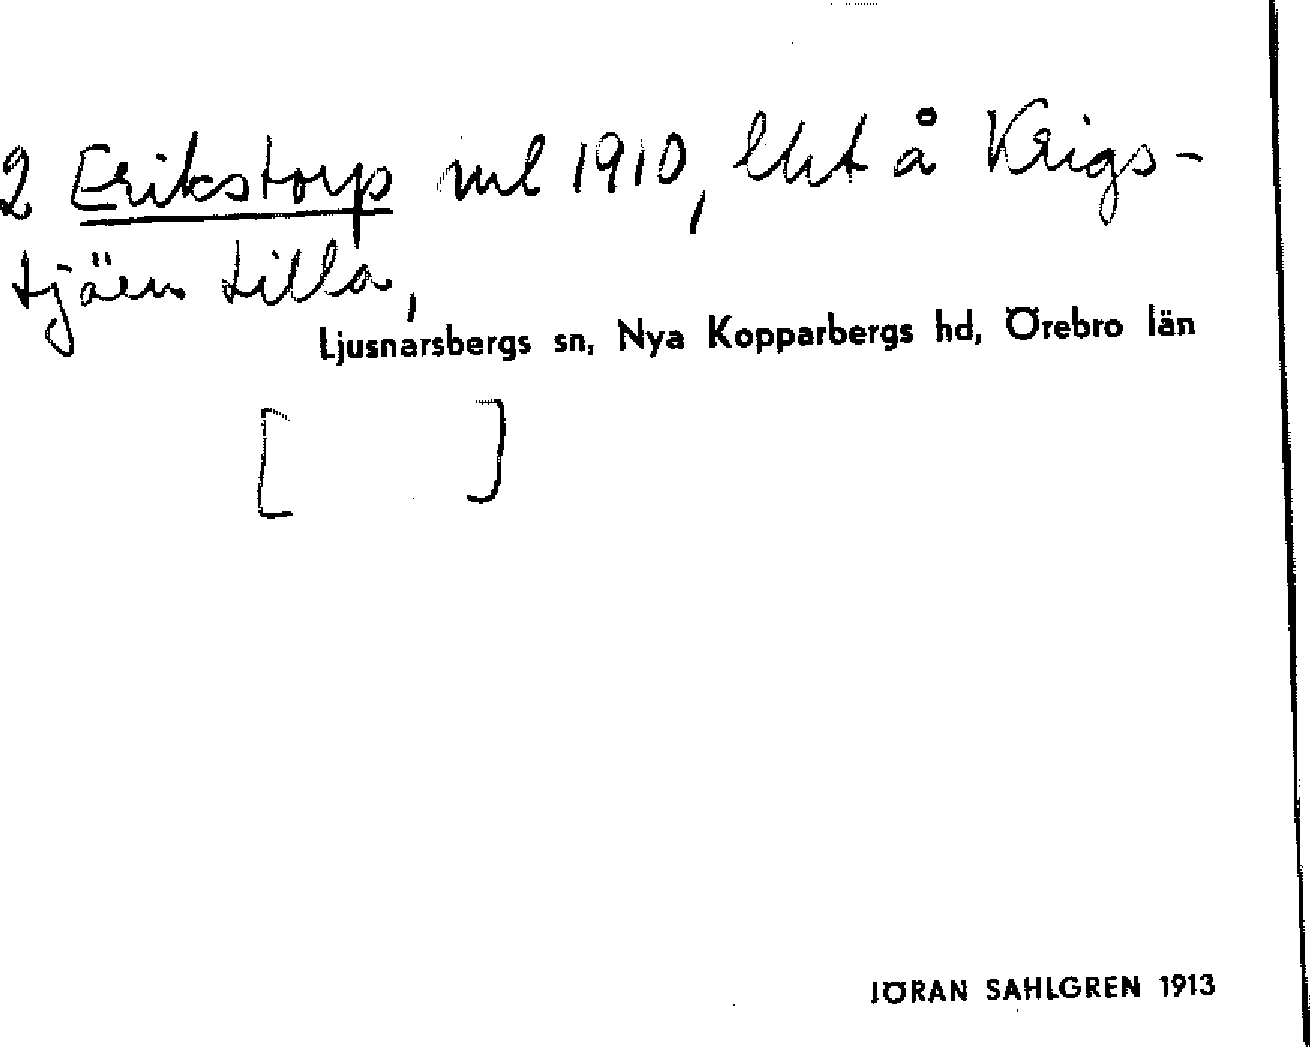 2 Erikstorp ml 1910, lht å Krigs-
tjärn Lilla,
Ljusnarsbergs sn, Nya Kopparbergs hd, Örebro län
[ ]
JÖRAN SAHLGREN 1913